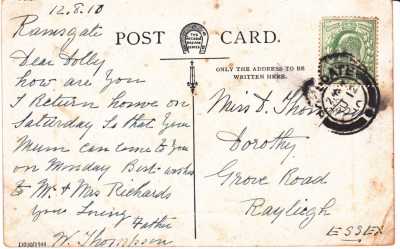 12.8.10
Ramsgate
POST CARD.
Dear Dolly
how are you
I Return home on
Saturday So that you
Mum can come to you
on Monday Best wishes
to Mr & Mrs Richards
your Loving
Father
W. Thompson
ONLY THE ADDRESS TO BE
WRITTEN HERE.
Miss D. Thom
Dorothy
Grove Road
Rayliegh
ESSEX